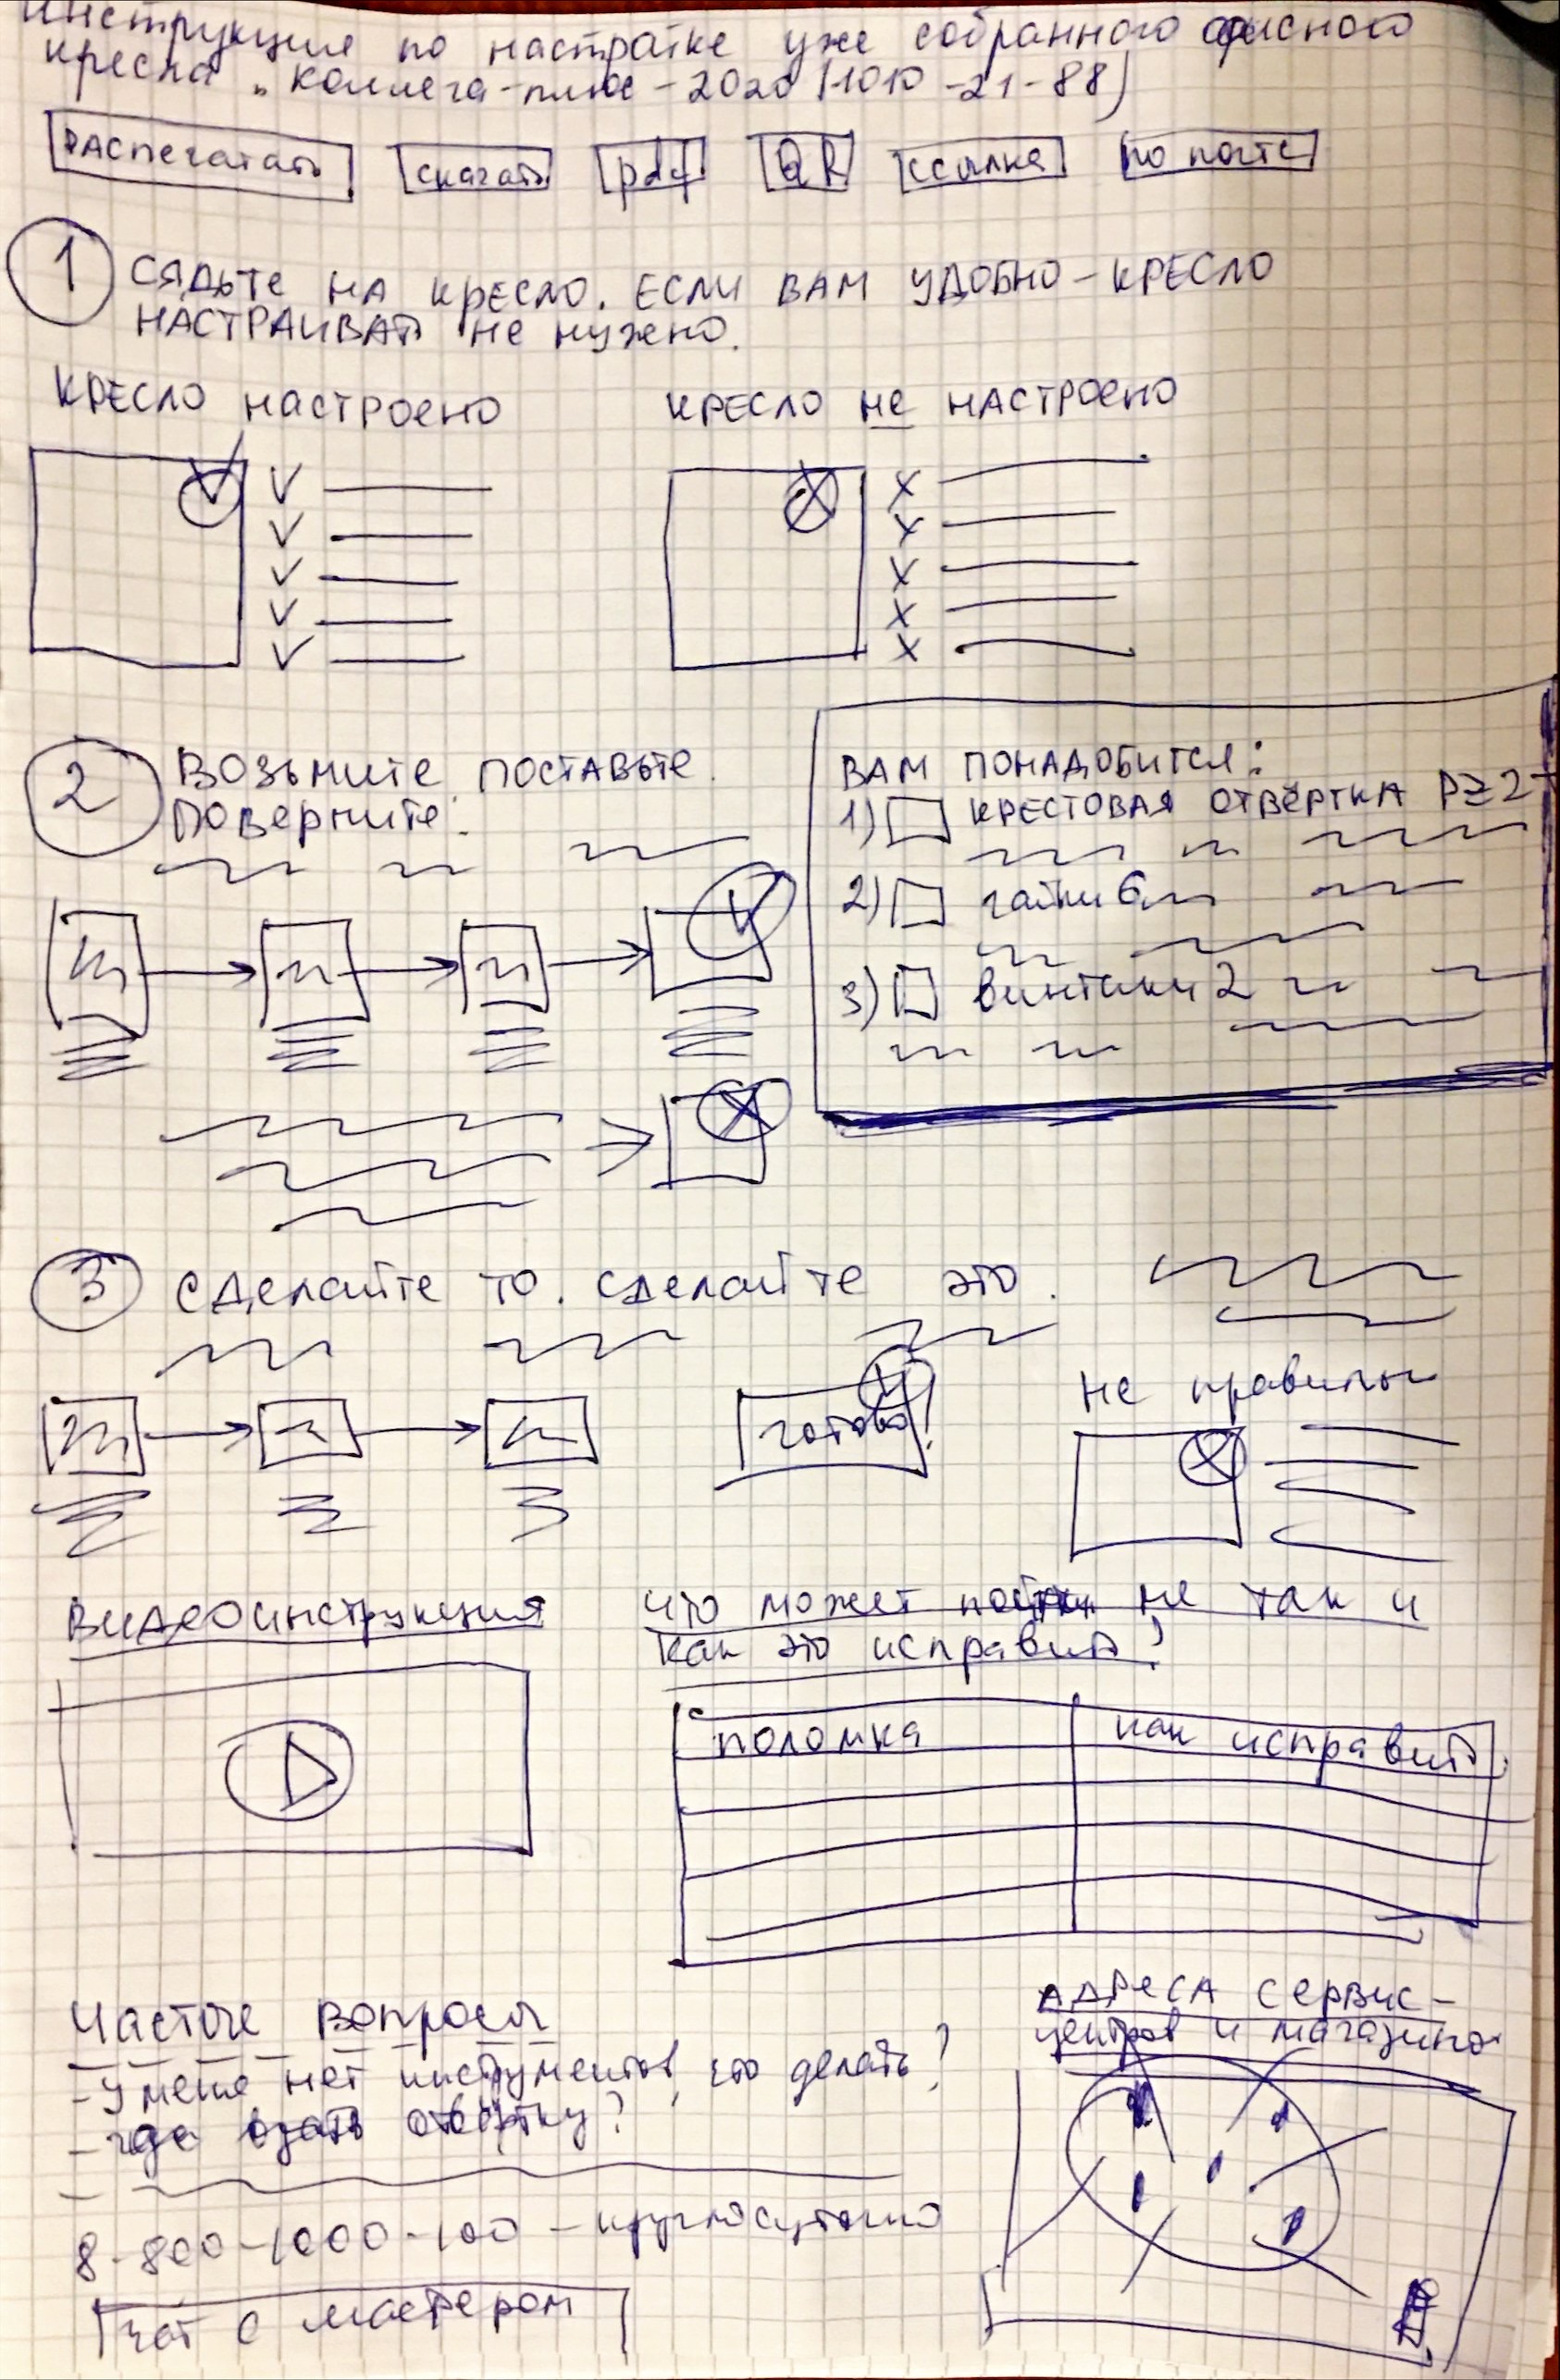 Инструкция по настройке уже собранного офисного
кресла "Коллега-плюс-2020 (1010-21-88)
РАСПЕЧАТАТЬ скачать pdf QR ссылка по почте
1 СЯДЬТЕ НА КРЕСЛО. ЕСЛИ ВАМ УДОБНО - КРЕСЛО
НАСТРАИВАТЬ НЕ НУЖНО.
КРЕСЛО НАСТРОЕНО
КРЕСЛО НЕ НАСТРОЕНО
2 ВОЗЬМИТЕ. ПОСТАВЬТЕ.
ПОВЕРНИТЕ.
ВАМ ПОНАДОБИТСЯ:
1) КРЕСТОВАЯ ОТВЁРТКА PZ2
2) гайки 6
3) винтики 2
3 СДЕЛАЙТЕ ТО. СДЕЛАЙТЕ ЭТО.
готово!
не правильн
ВИДЕОИНСТРУКЦИЯ
ЧТО МОЖЕТ ПОЙТИ НЕ ТАК И
КАК ЭТО ИСПРАВИТЬ?
ПОЛОМКА как исправить
Частые вопросы
- У меня нет инструментов, что делать?
- где взять отвёртку?
8-800-1000-100 - круглосуточно
чат с мастером
АДРЕСА СЕРВИС-
центров и магазинов